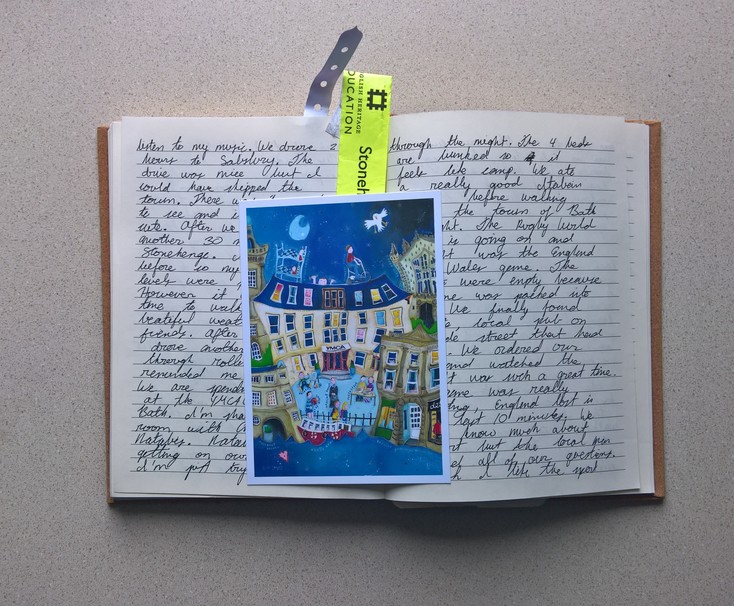 listen to my music. We drove 2
hours to Salsbury. The
drive was nice but I
could have skipped the
town. There w
to see and i
site. After we
another 30 m
Stonehenge.
before so my
levels were
However it
time to walk
beatiful weat
friends. After
drove another
through rolli
reminded me
We are spend
at the YMCA
Bath. I'm sha
room with
Natalys. Natal
getting on our
I'm just try
ENGLISH HERITAGE
EDUCATION
Stoneh
YMCA
through the night. The 4 beds
are bunked so it
feels like camp. We ate
a really good Italian
before walking
the town of Bath
ht. The Rugby World
is going on and
it was the England
Wales game. The
s were empty because
ne was packed into
We finally found
local pub on
de street that had
. We ordered our
and watched the
t was such a great time.
me was really
ing England lost is
last 10 minutes. We
know much about
rt but the local men
ed all of our questions
h I like the sport